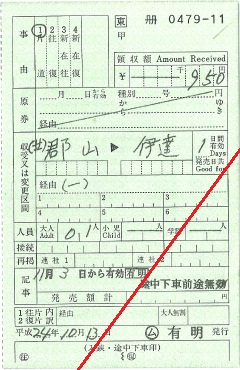 東 冊 0479-11
甲
事由
1 2 3 4
片道 往復
領収額 Amount Received
¥ 950
原券
月 日 種別 号 から ゆき
経由
収受又は変更区間
(由) 郡山 ▶ 伊達
1 日間有効 Days
発売日共 Good for
経由 (一)
1 2 3
4 5 6
人員 大人 Adult 0,1人 小児 Child 人 学割
接続
再掲 連社1 連社2
記事
11月3日から有効 有明
途中下車前途無効
発売額計
1 往片 内
2 復片 訳
経由 大人無割
平成24年10月13日 ム 有明 発行
・途中下車印)